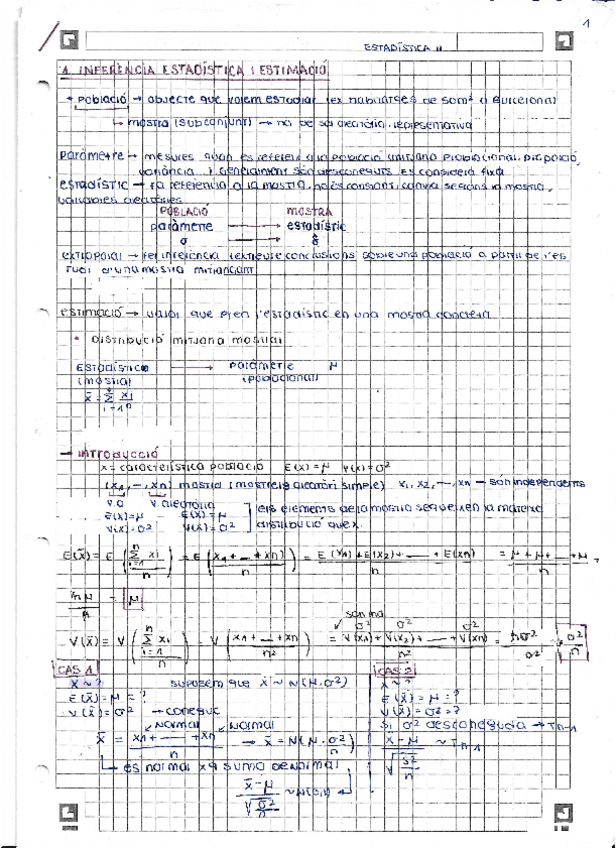 1
ESTADÍSTICA II
1. INFERÈNCIA ESTADÍSTICA I ESTIMACIÓ
• Població → objecte que volem estudiar (ex habitatges de 50m² a Barcelona)
↳ mostra (subconjunt) → ha de ser aleatòria, representativa
paràmetre → mesures quan es refereix a la població (mitjana poblacional, proporció,
variància...) generalment són desconeguts. Es considera fixa
estadístic → fa referència a la mostra, no és constant, canvia segons la mostra,
variables aleatòries
POBLACIÓ MOSTRA
paràmetre → estadístic
θ → θ̂
extrapolar → fer inferència (extreure conclusions sobre una població a partir de l'es
tudi d'una mostra mitjançant
estimació → valor que pren l'estadístic en una mostra concreta
• Distribució mitjana mostral
Estadístic → paràmetre μ
(mostral) (poblacional)
x̄ = Σ xi
i=1 n
→ INTRODUCCIÓ
x = característica població E(x) = μ V(x) = σ²
(x1, –, xn) mostra (mostreig aleatòri simple) x1, x2, –, xn – són independents
V.A V. aleatòria
E(x) = μ E(x) = μ els elements de la mostra segueixen la mateixa
V(x) = σ² V(x) = σ² distribució que x.
E(x̄) = E (Σ xi / n) = E (x1 + ... + xn / n) = E(x1) + E(x2) + ... + E(xn) / n = μ + μ + ... + μ / n =
nμ / n = μ
són iid
V(x̄) = V (Σ xi / n) = V (x1 + ... + xn) / n² = V(x1) + V(x2) + ... + V(xn) / n² = nσ² / n² = σ² / n
CAS 1 CAS 2
x ~ ? suposem que x ~ N(μ, σ²) x ~ ?
E(x) = μ = ? E(x) = μ = ?
V(x) = σ² → conegut V(x) = σ² = ?
Normal Normal Si σ² desconeguda → Tn-1
x̄ = x1 + ... + xn / n → x̄ = N(μ, σ²/n) x̄ - μ / √(s²/n) ~ Tn-1
↳ és normal xq suma de normal
x̄ - μ / √(σ²/n) ~ N(0,1)